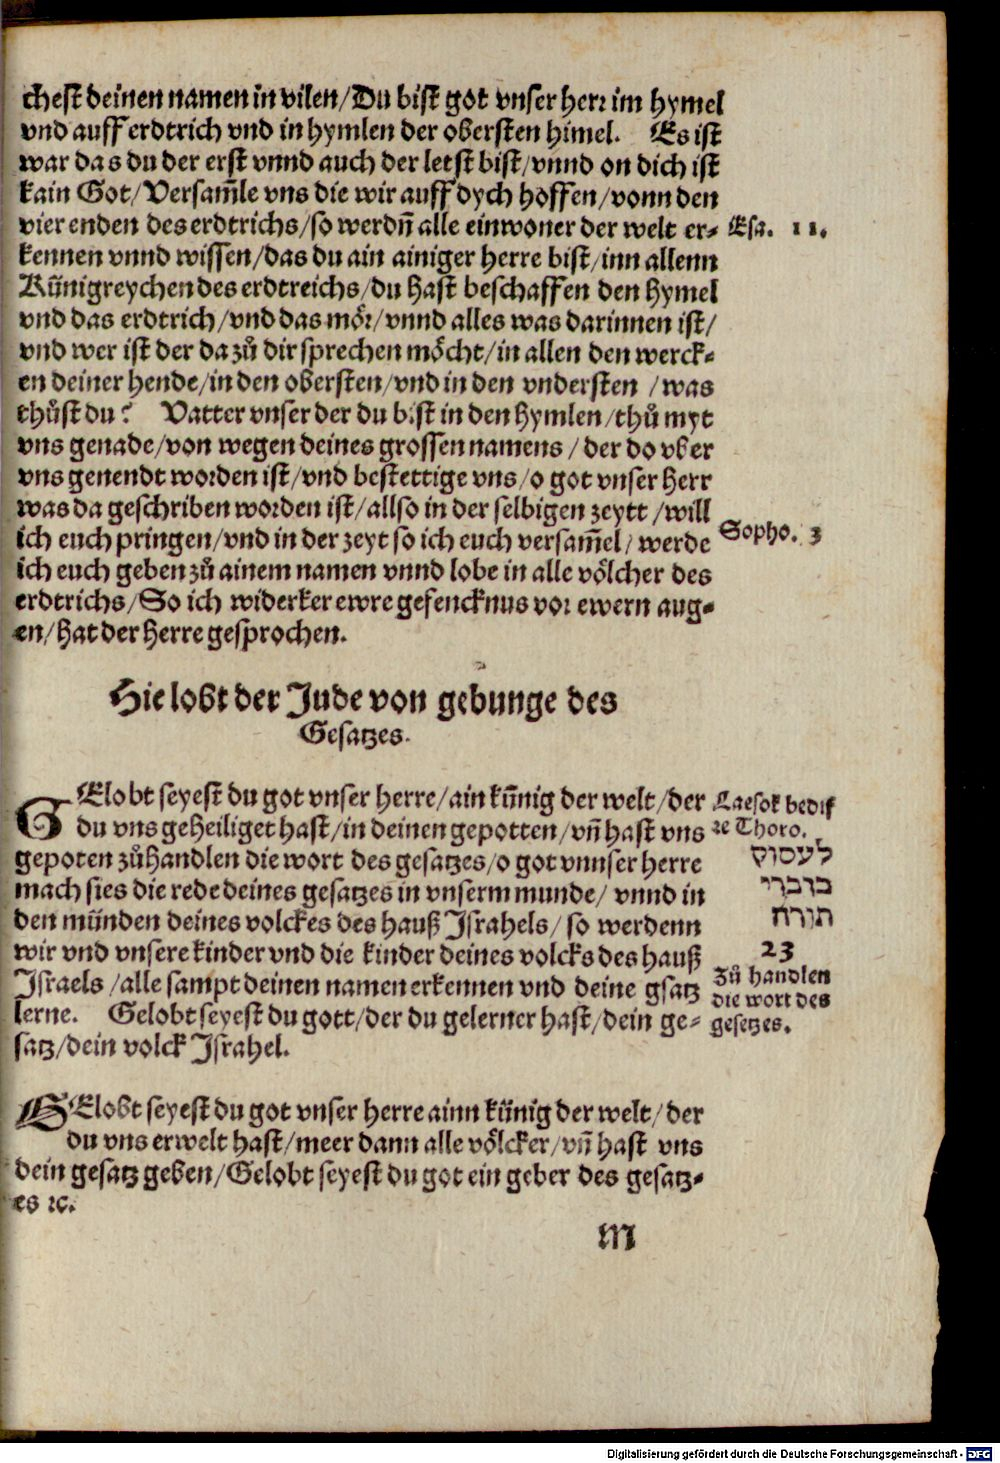 chest deinen namen in vilen/Du bist got vnser herr im hymel
vnd auff erdtrich vnd in hymlen der obersten himel. Es ist
war das du der erst vnnd auch der letst bist/vnnd on dich ist
kain Got/Versam̃le vns die wir auff dych hoffen/vonn den
vier enden des erdtrichs/so werdñ alle einwoner der welt er-
Esa. 11.
kennen vnnd wissen/das du ain ainiger herre bist/inn allenn
Künigreychen des erdtreichs/du hast beschaffen den hymel
vnd das erdtrich/vnd das mör/vnnd alles was darinnen ist/
vnd wer ist der da zů dir sprechen möcht/in allen den werck-
en deiner hende/in den obersten/vnd in den vndersten /was
thůst du? Vatter vnser der du bist in den hymlen/thů myt
vns genade/von wegen deines grossen namens/ der do vber
vns genendt worden ist/vnd bestettige vns/o got vnser herr
was da geschriben worden ist/allso in der selbigen zeytt /will
ich euch pringen/vnd in der zeyt so ich euch versam̃el/ werde
Sopho. 3
ich euch geben zů ainem namen vnnd lobe in alle völcher des
erdtrichs/So ich widerker ewre gefencknus vor ewern aug-
en/hat der herre gesprochen.
Hie lobt der Jude von gebunge des
Gesatzes.
GElobt seyest du got vnser herre/ain künnig der welt/der
du vns geheiliget hast/in deinen gepotten/vñ hast vns
gepoten zůhandlen die wort des gesatzes/o got vnnser herre
mach sies die rede deines gesatzes in vnserm munde/ vnnd in
den münden deines volckes des hauß Israhels/ so werdenn
wir vnd vnsere kinder vnd die kinder deines volcks des hauß
Israels /alle sampt deinen namen erkennen vnd deine gsatz
lerne. Gelobt seyest du gott/der du gelerner hast/dein ge-
satz/dein volck Israhel.
Laesok bedif
ꝛe Thoro.
לעסוק
בדברי
תורה
23
Zů handlen
die wort des
gesetzes.
GElobt seyest du got vnser herre ainn künig der welt/der
du vns erwelt hast/meer dann alle völcker/vñ hast vns
dein gesatz geben/Gelobt seyest du got ein geber des gesatz-
es ꝛc.
M
Digitalisierung gefördert durch die Deutsche Forschungsgemeinschaft - DFG